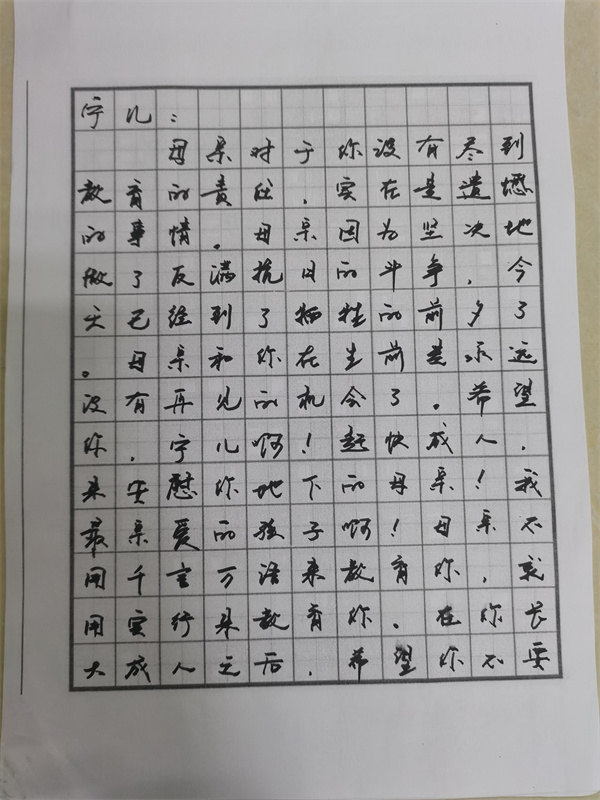 宁儿：
母亲对于你没有尽到
教育的责任，实在是遗憾
的事情。母亲因为坚决地
做了反满抗日的斗争，今
天已经到了牺牲的前夕了
。母亲和你在生前是永远
没有再见的机会了。希望
你，宁儿啊！赶快成人，
来安慰你地下的母亲！我
最亲爱的孩子啊！母亲不
用千言万语来教育你，就
用实行来教育你。在你长
大成人之后，希望你不要